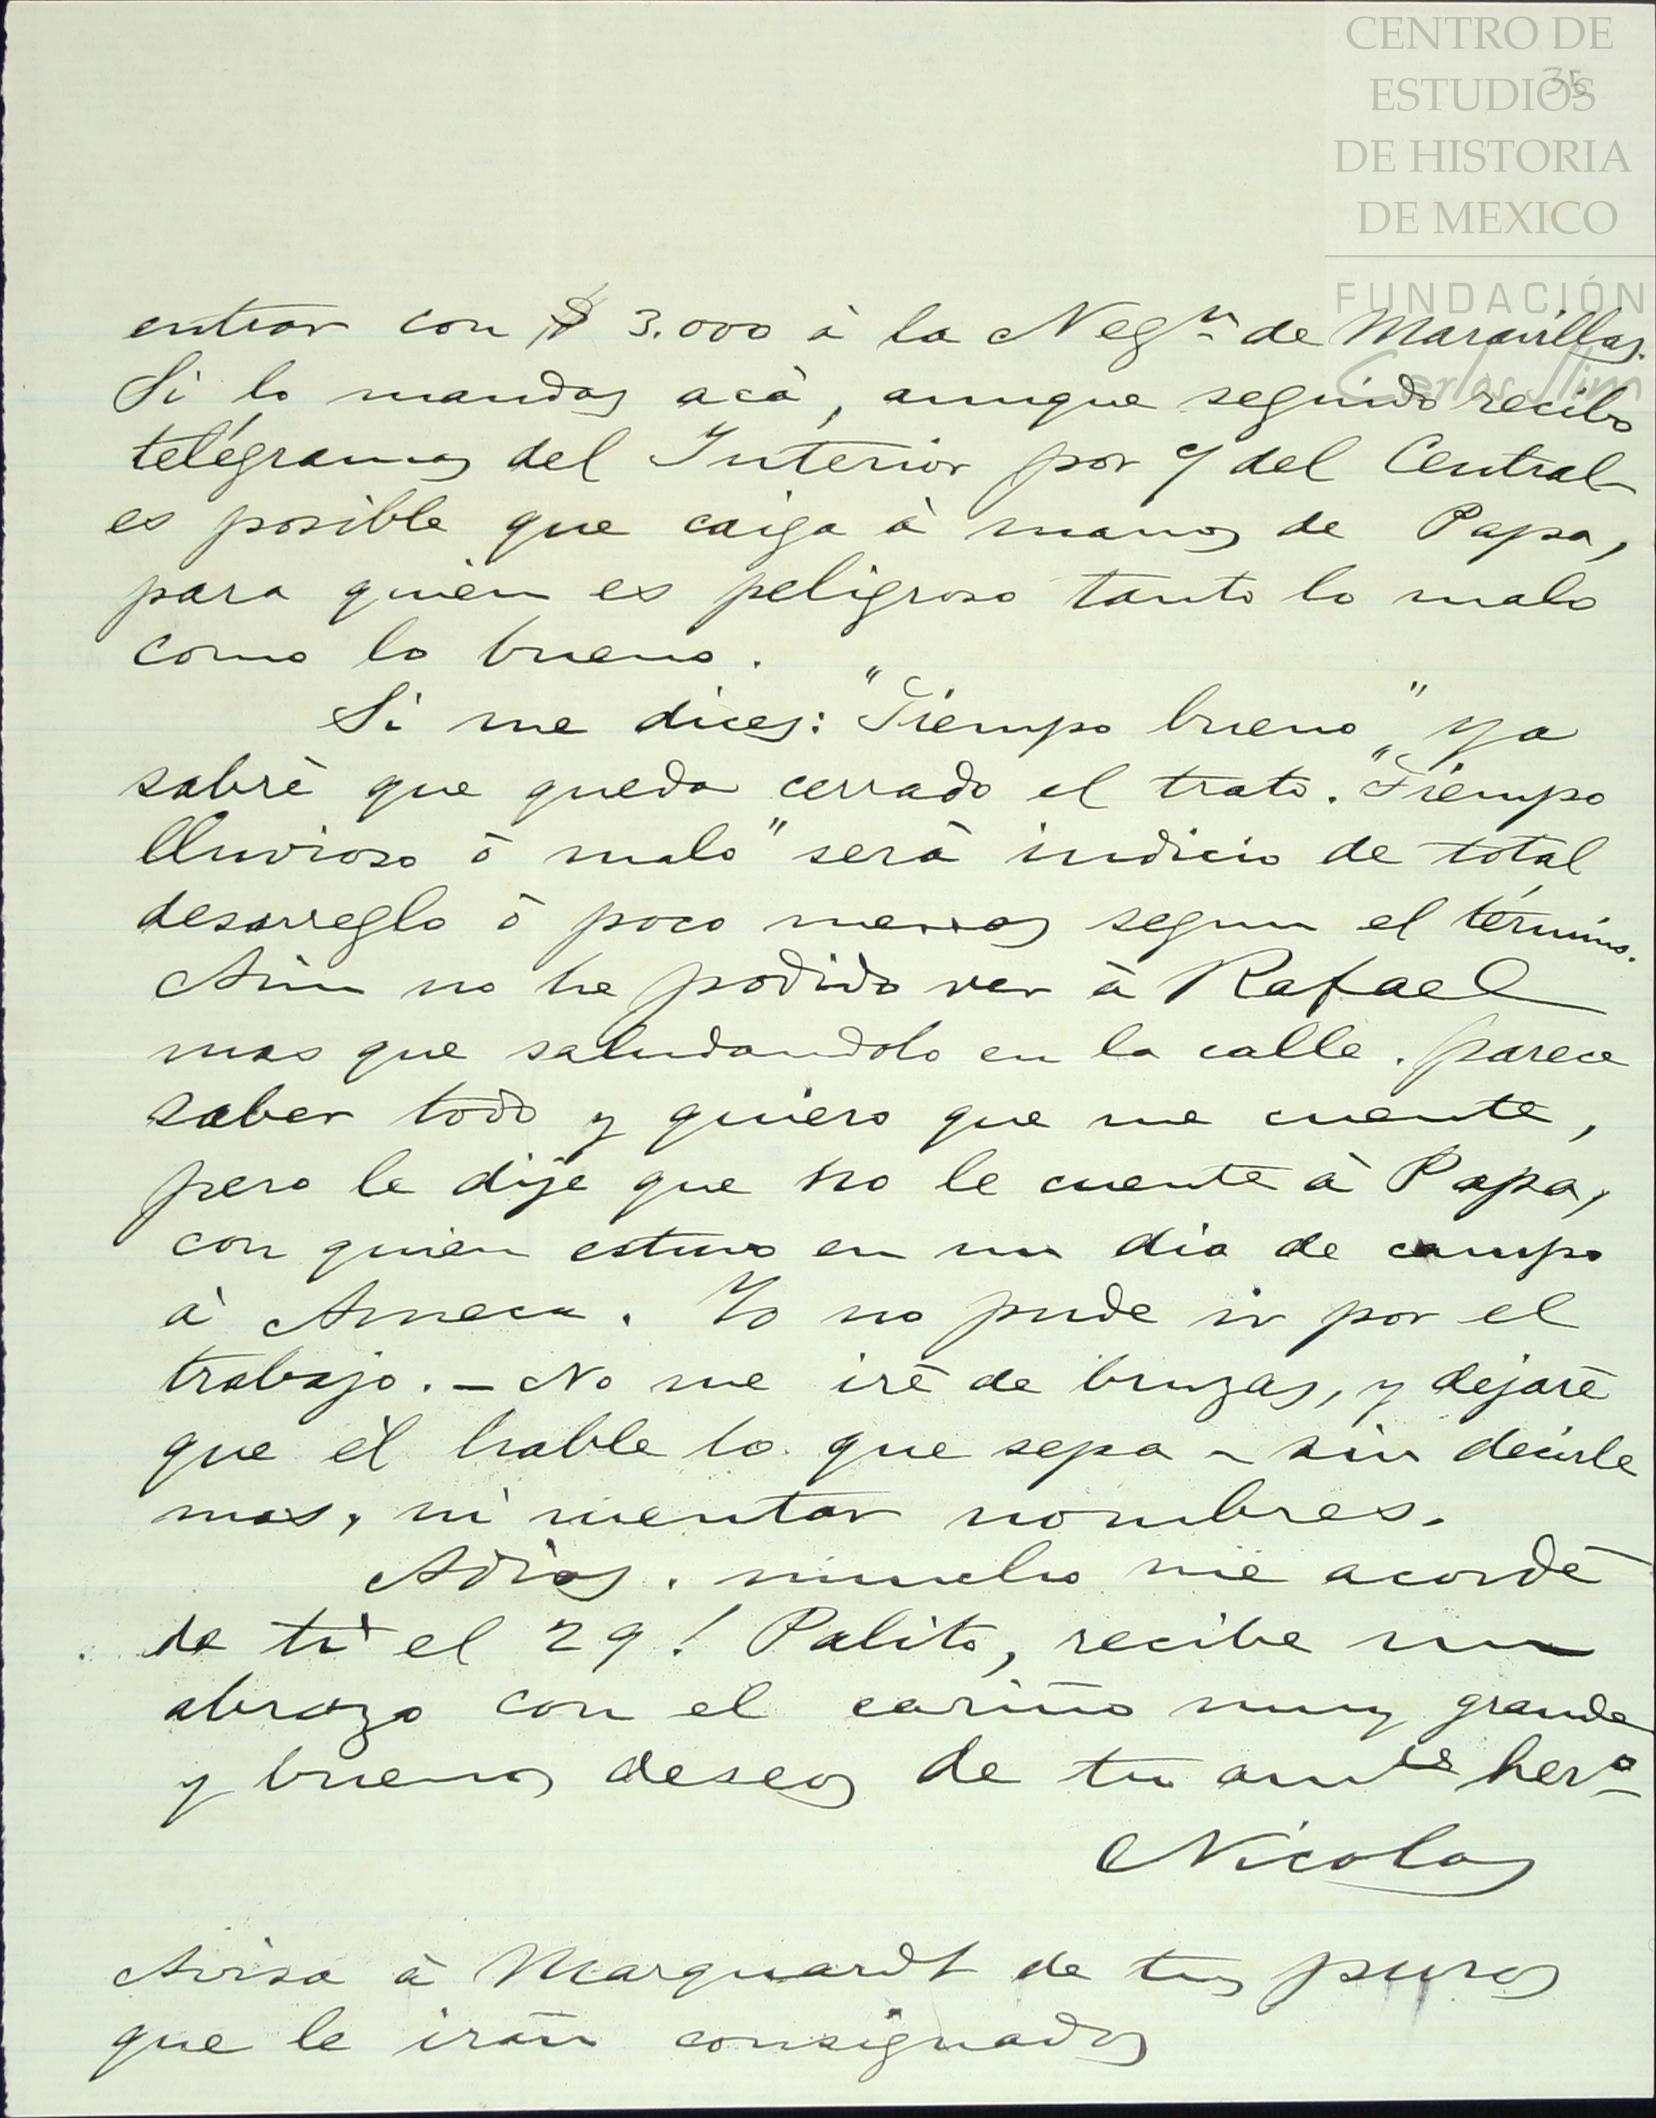 CENTRO DE
ESTUDIOS
DE HISTORIA
DE MEXICO
FUNDACIÓN
Carlos Slim
35
entrar con $ 3.000 à la Negn de Maravillas.
Si lo mandas acà, aunque seguido recibo
telégramas del Interior por c/ del Central
es posible que caiga à manos de Papa,
para quien es peligroso tanto lo malo
como lo bueno.
Si me dices: "Tiempo bueno" ya
sabrè que queda cerrado el trato. "Tiempo
lluvioso ò malo" serà indicio de total
desarreglo ò poco menos segun el término.
Aún no he podido ver à Rafael
mas que saludandolo en la calle. parece
saber todo y quiero que me cuente,
pero le dije que no le cuente à Papa,
con quien estuvo en un dia de campo
à Ameca. Yo no pude ir por el
trabajo. — No me iré de bruzas, y dejaré
que él hable lo que sepa - sin decirle
mas, ni mentar nombres.
Adios. mucho me acordé
de tì el 29! Palito, recibe un
abrazo con el cariño muy grande
y buenos deseos de tu amte hero
Nicolas
Avisa à Marquardt de tus puros
que le irán consignados